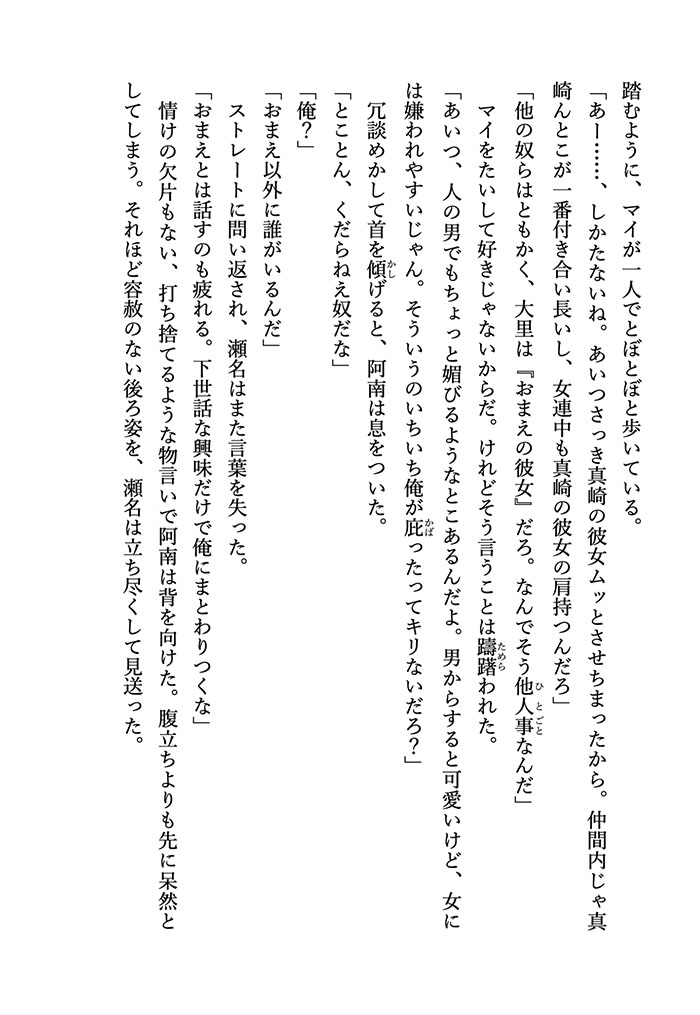 踏むように、マイが一人でとぼとぼと歩いている。
「あー……、しかたないね。あいつさっき真崎の彼女ムッとさせちまったから。仲間内じゃ真
崎んとこが一番付き合い長いし、女連中も真崎の彼女の肩持つんだろ」
「他の奴らはともかく、大里は『おまえの彼女』だろ。なんでそう他人事なんだ」
マイをたいして好きじゃないからだ。けれどそう言うことは躊躇われた。
「あいつ、人の男でもちょっと媚びるようなとこあるんだよ。男からすると可愛いけど、女に
は嫌われやすいじゃん。そういうのいちいち俺が庇ったってキリないだろ？」
冗談めかして首を傾げると、阿南は息をついた。
「とことん、くだらねえ奴だな」
「俺？」
「おまえ以外に誰がいるんだ」
ストレートに問い返され、瀬名はまた言葉を失った。
「おまえとは話すのも疲れる。下世話な興味だけで俺にまとわりつくな」
情けの欠片もない、打ち捨てるような物言いで阿南は背を向けた。腹立ちよりも先に呆然と
してしまう。それほど容赦のない後ろ姿を、瀬名は立ち尽くして見送った。